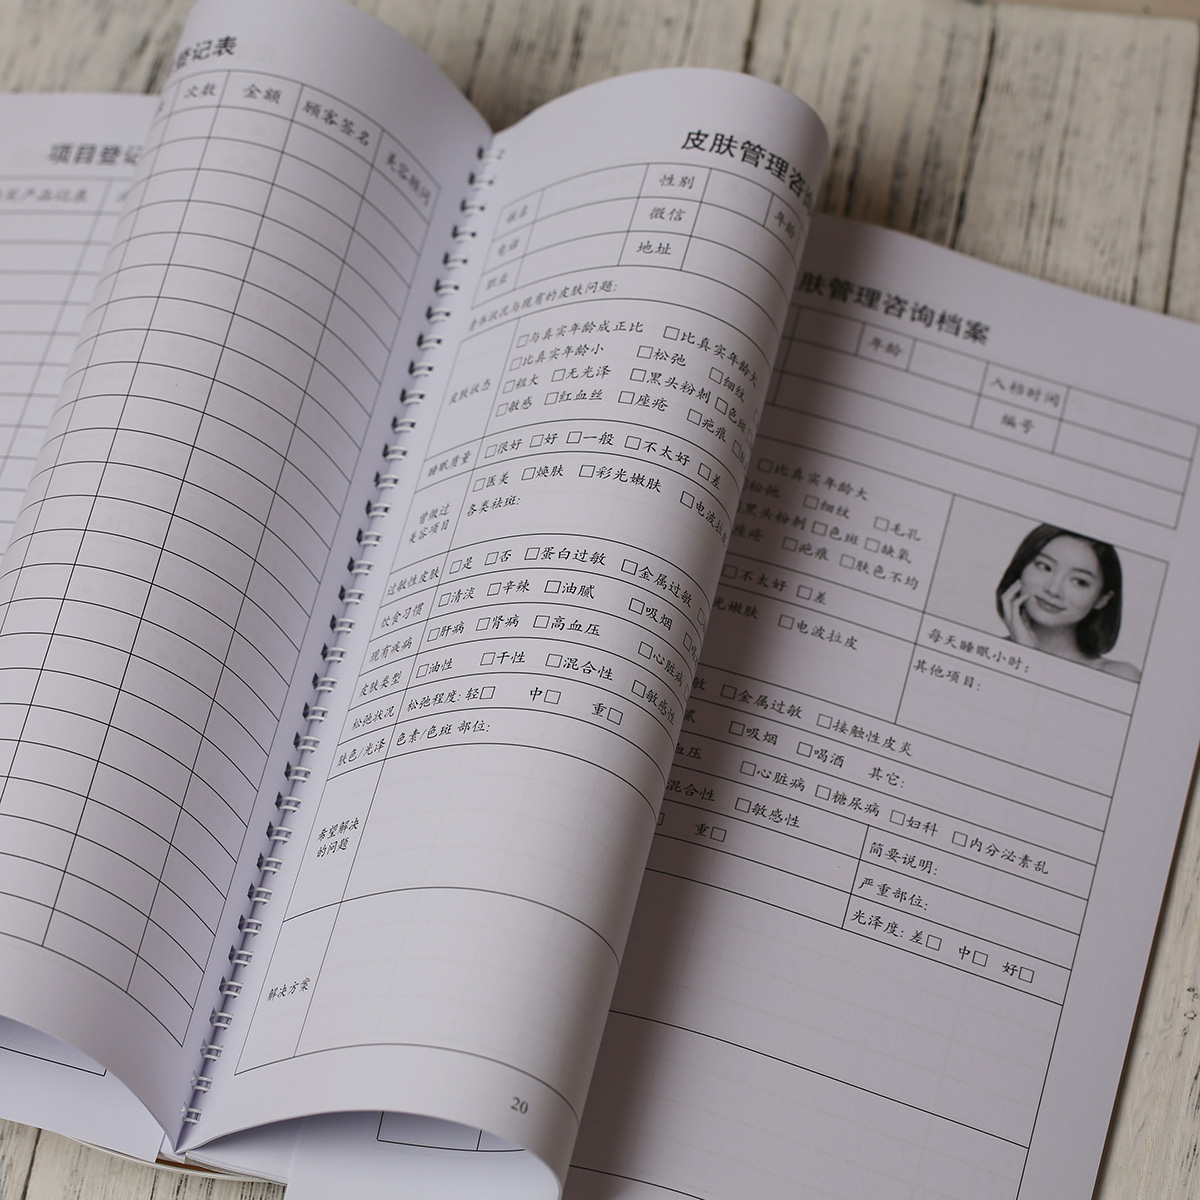 项目登记
产品记表
登记表
次数 金额 顾客签名 美容顾问
皮肤管理咨询
姓名 性别 年龄
电话 微信
职业 地址
身体状况与现有的皮肤问题:
皮肤状态
□与真实年龄成正比 □比真实年龄大
□比真实年龄小 □松弛 □细纹
□粗大 □无光泽 □黑头粉刺 □色斑
□敏感 □红血丝 □座疮 □疤痕
睡眠质量 □很好 □好 □一般 □不太好 □差
曾做过美容项目 □医美 □焕肤 □彩光嫩肤 □电波拉皮
各类祛斑:
过敏性皮肤 □是 □否 □蛋白过敏 □金属过敏
饮食习惯 □清淡 □辛辣 □油腻 □吸烟
现有疾病 □肝病 □肾病 □高血压 □心脏病
皮肤类型 □油性 □干性 □混合性 □敏感性
松弛状况 松弛程度: 轻□ 中□ 重□
肤色/光泽 色素/色斑 部位:
希望解决的问题
解决方案
20
肤管理咨询档案
年龄 入档时间
编号
□比真实年龄大
松弛 □细纹 □毛孔
黑头粉刺 □色斑 □缺氧
座疮 □疤痕 □肤色不均
□不太好 □差
每天睡眠小时:
光嫩肤 □电波拉皮
其他项目:
敏 □金属过敏 □接触性皮炎
腻 □吸烟 □喝酒 其它:
血压 □心脏病 □糖尿病 □妇科 □内分泌紊乱
混合性 □敏感性
重□
简要说明:
严重部位:
光泽度: 差□ 中□ 好□